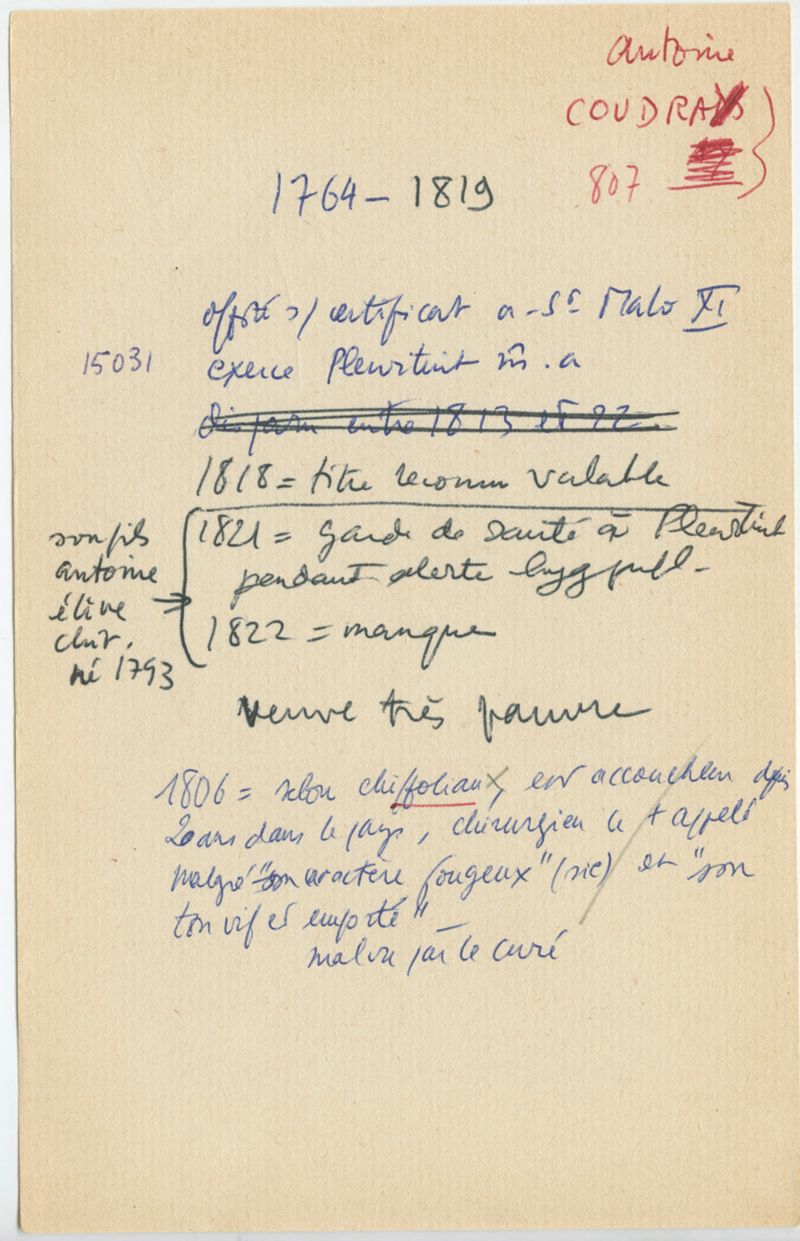 Antoine
COUDRAY
807
1764 – 1819
offté s/ certificat a St Malo XI
15031
exerce Pleurtuit m. a
disparu entre 1813 et 22.
1818 = titre reconnu valable
1821 = garde de santé à Pleurtuit
pendant alerte
1822 = manque
son fils
antoine
élève
chir.
né 1793
veuve très pauvre
1806 = selon chiffoliaux, est accoucheur depuis
20 ans dans le pays, chirurgien le + appelé
malgré "son caractère fougeux" (sic) et "son
ton vif et emporté"
mal vu par le curé